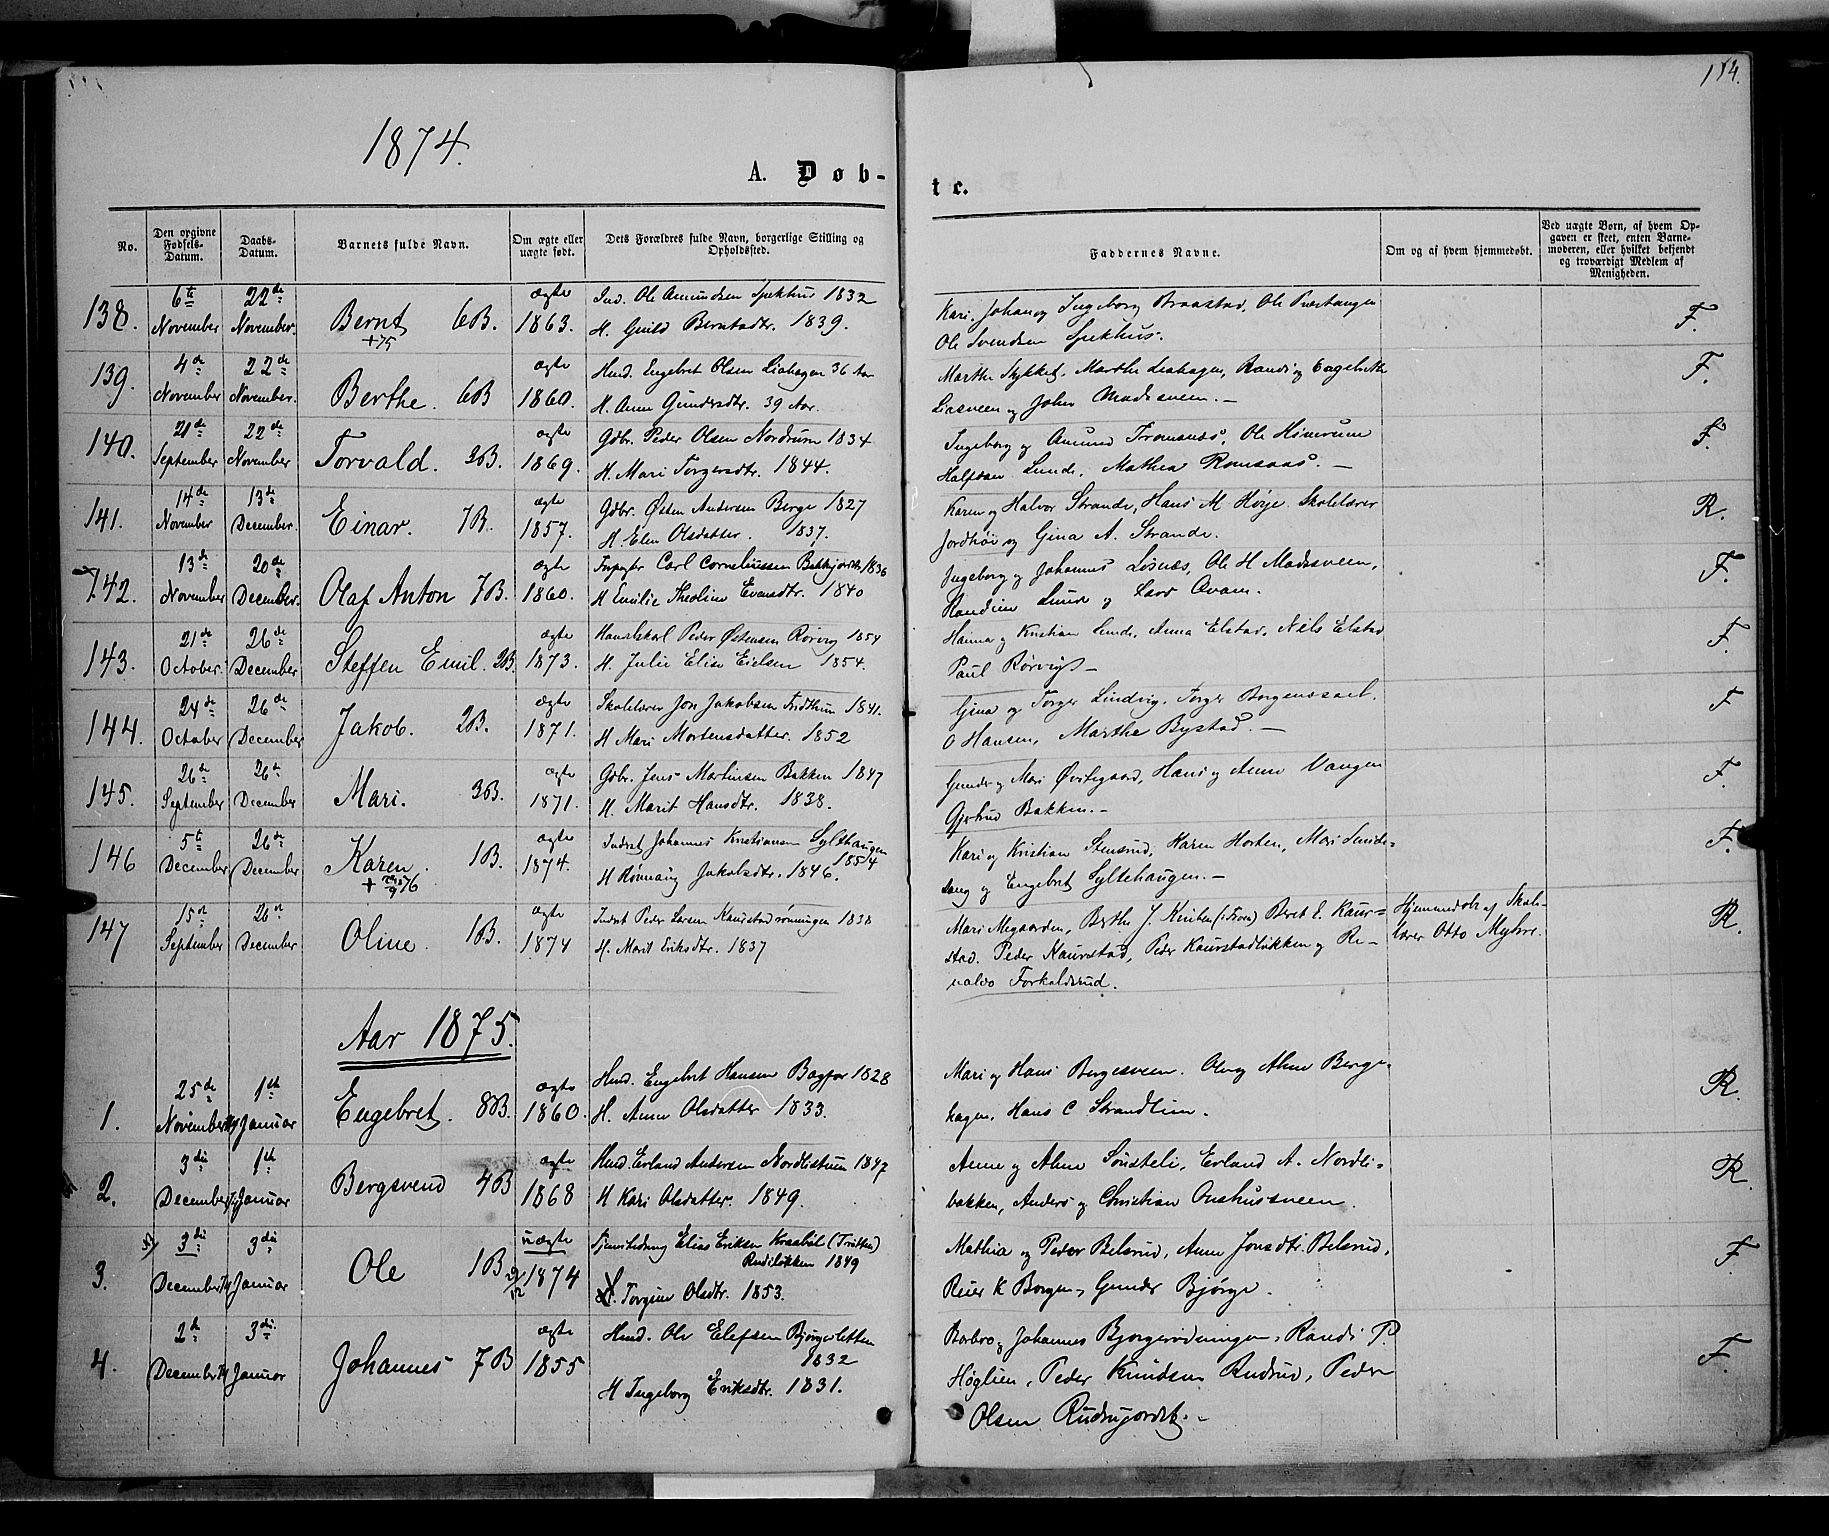 114.
1874.
A. Døb-
te.
No.
Den opgivne Fødsels-Datum.
Daabs-Datum.
Barnets fulde Navn.
Om ægte eller uægte født.
Dets Forældres fulde Navn, borgerlige Stilling og Opholdsted.
Faddernes Navne.
Om og af hvem hjemmedøbt.
Ved uægte Børn, af hvem Opgaven er skeet, enten Barnemoderen, eller hvilket bekjendt og troværdigt Medlem af Menigheden.
138. 6te November 22de November. Bernt 6B. +75 ægte 1863.
Ind. Ole Amundsen Spekhus 1832
H. Guild Berntsdtr. 1839.
Kari, Johan og Ingeborg Braastad, Ole Præstangen
Ole Svendsen Spekhus.
F.
139. 4de November 22de November. Berthe. 6B ægte 1860.
Husd. Engebret Olsen Liahagen 36 Aar
H. Anne Gundersdtr. 39 Aar.
Marthe Sykket, Marthe Liahagen, Randi og Engebrette
Liasveen og Johs Madssveen. —
F.
140. 21de September 22de November Torvald. 2B. ægte 1869.
Gdbr. Peder Olsen Nordrum 1834
H. Mari Torgersdtr. 1844.
Ingeborg og Amund Tromsnæs, Ole
Halfdan Lunde, Mathea Romsaas. —
F.
141. 14de November 13de December. Einar. 7B. ægte 1857.
Gdbr. Østen Andersen Berge 1827
H. Elen Olsdatter. 1837.
Karen og Halvor Strande, Hans M Høye Skolelærer
Jordhøi og Gina A. Strande.
R.
142. 13de November 20de December. Olaf Anton 7B. ægte 1860.
Carl Corneliussen 1836
H Emilie Theoline Evensdtr. 1840
Ingeborg og Johannes Losnæs, Ole H Madssveen,
Lunde og Lars Qvam.
F.
143. 21de October. 26de December Steffen Emil. 2B. ægte 1873.
Handelskarl Peder Østensen Rørvig 1854
H. Julie Elise Eielsen 1854.
Hanna og Kristian Lunde, Anna Elstad, Nils Elstad
Paul Rørvig —
F.
144. 24de October 26de December Jakob. 2B. ægte 1871.
Skolelærer Jon Jakobsen Fridthum 1841.
H Mari Mortensdatter. 1852
Gina og Torger Lindvig, Torger
O Hansen, Marthe Bystad. —
F
145. 26de September 26de December Mari. 3B. ægte 1871.
Gdbr. Jens Martinsen Bakken 1847
H. Marit Hansdtr. 1838.
Gunder og Mari Øvstegaard, Hans og Anne Vangen
Gjertrud Bakken. —
F.
146 5te December 26de December Karen. 1B. + 76 ægte 1874.
Inderst Johannes Kristiansen Sylthaugen 1854
H Rønnaug Jakobsdtr. 1846.
Kari og Kristian Stensrud, Karen Horten, Mari Linde=
lang og Engebret Syltehaugen. —
F.
147 15de September 26de December Oline. 1B. ægte 1874
Inderst Peder Larsen Kaurstadrønningen 1838
H. Marit Eriksdtr. 1837
Mari Megaarden, Berthe J. Beret E. Kaur=
stad. Peder Kaurstad, Peder Kaurstadløkken og
Forkalsrud.
Hjemmedøbt af Skole-
lærer Otto Myhre.
R.
Aar 1875.
1. 25de November 74 1ste Januar Engebret. 8B. ægte 1860.
Husd. Engebret Hansen Bagfor 1828
H. Anne Olsdatter 1833.
Mari og Hans Bergesveen. Ole og Anne Berge-
hagen, Hans C Strandlien.
R.
2. 3die December 74 1ste Januar Bergsvend 4B ægte 1868
Husd. Erland Andersen Nordlistuen 1847
H Kari Olsdatter. 1849.
Anne og Anne Sousteli, Erland A. Nordli=
bakken, Anders og Christian
R.
3. 3die December 74 3die Januar Ole 1B uægte 1874
Elias Eriksen Kraabøl (Tretten)
Rudiløkken 1849
Torgine Olsdtr. 1853.
Mathia og Peder Belsrud, Anne Jonsdtr. Belsrud,
Reier K Borgen, Gunder Bjørge.
F.
4. 2de December 74 3die Januar Johannes 7B ægte 1855
Husd. Ole Elefsen Bjørgesletten
1832
H Ingeborg Eriksdtr. 1831.
Barbro og Johannes Bjørgerødningen, Randi P.
Høglien, Peder Knudsen Rudsrud, Peder
Olsen Rudsujordet. —
F.